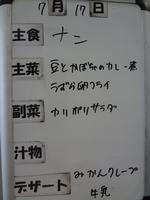 7月17日
主食 ナン
主菜 豆とかぼちゃのカレー煮
うずら卵フライ
副菜 カリポリサラダ
汁物
デザート みかんクレープ
牛乳